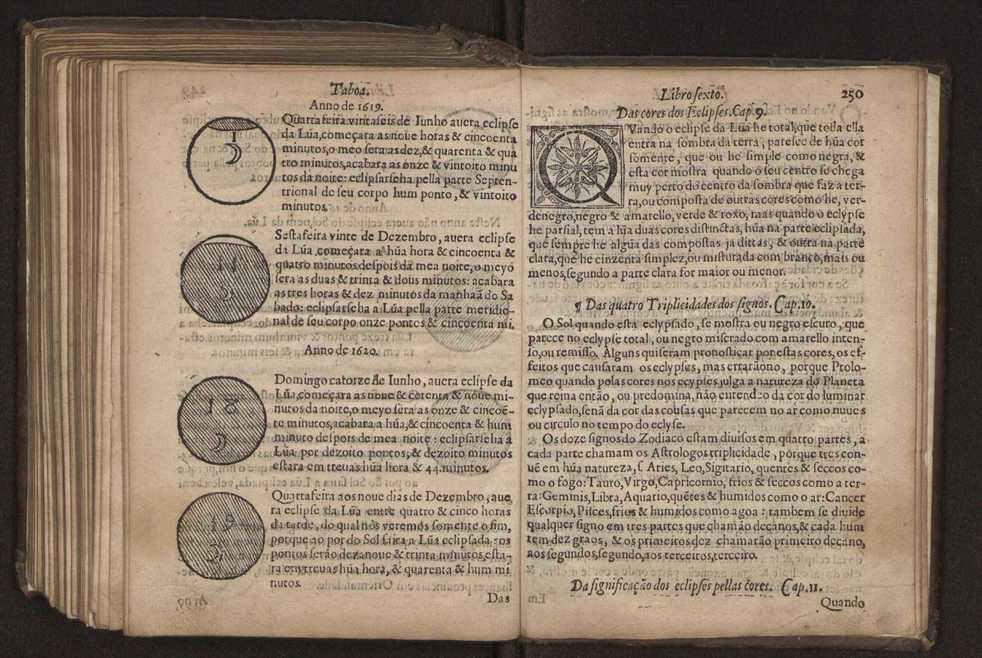 Taboa.
Anno de 1619.
Quarta feira vinta seis de Iunho auera eclipse
da Lũa, começara as noue horas & cincoenta
minutos, o meo sera as dez, & quarenta & qua
tro minutos, acabara as onze & vintoito minu
tos da noite: eclipsarseha pella parte Septen-
trional de seu corpo hum ponto, & vintoito
minutos.
Sestafeira vinte de Dezembro, auera eclipse
da Lũa começara a hũa hora & cincoenta &
quatro minutos despois da mea noite, o meyo
sera as duas & trinta & dous minutos: acabara
as tres horas & dez minutos da manhaã do Sa
bado: eclipsarseha a Lũa pella parte meridio-
nal de seu corpo onze pontos & cincoenta mi.
Anno de 1620.
Domingo catorze de Iunho, auera eclipse da
Lũa, começara as noue & corenta & noue mi-
nutos da noite, o meyo sera as onze & cincoẽ-
te minutos, acabara a hũa, & cincoenta & hum
minuto despois de mea noite: eclipsarseha a
Lũa por dezoito pontos, & dezoito minutos
estara em treuas hũa hora & 44. minutos.
Quartafeira aos noue dias de Dezembro, aue
ra eclipse da Lũa entre quatro & cinco horas
da tarde, do qual nós veremos somente o fim,
porque ao por do Sol saira a Lũa eclipsada: os
pontos serão dezanoue & trinta minutos, esta-
ra em treuas hũa hora, & quarenta & hum mi
nutos.
Das
Libro sexto. 250
Das cores dos Eclipses. Cap. 9.
QVando o eclipse da Lũa he total, que toda ella
entra na sombra da terra, paresce de hũa cor
somente, que ou he simple como negra, &
esta cor mostra quando o seu centro se chega
muy perto do centro da sombra que faz a ter-
ra, ou composta de outras cores como he, ver-
denegro, negro & amarello, verde & roxo, mas quando o eclypse
he parsial, tem a lũa duas cores distinctas, hũa na parte eclipsada,
que sempre he algũa das compostas ja dittas, & outra na parte
clara, que he cinzenta simplez, ou misturada com branco, mais ou
menos, segundo a parte clara for maior ou menor.
¶ Das quatro Triplicidades dos signos. Cap. 10.
O Sol quando esta eclypsado, se mostra ou negro escuto, que
parece no eclypse total, ou negro miscrado com amarello inten-
so, ou remisso. Alguns quiseram pronosticar por estas cores, os ef-
feitos que causaram os eclypses, mas errarão no, porque Ptolo-
meo quando polas cores nos ecypses julga a natureza do Planeta
que reina então, ou predomina, não entende da cor do luminar
eclypsado, senã da cor das cousas que parecem no ar como nuues
ou circulo no tempo do eclyse.
Os doze signos do Zodiaco estam diuisos em quatro partes, a
cada parte chamam os Astrologos triplicidade, porque tres con-
uẽ em hũa natureza, s. Aries, Leo, Sigitario, quentes & seccos co-
mo o fogo: Tauro, Virgo, Capricornio, frios & seccos como a ter-
ra: Geminis, Libra, Aquario, quẽtes & humidos como o ar: Cancer
Escorpio, Pisces, frios & humidos como agoa: tambem se diuide
qualquer signo em tres partes que chamão decanos, & cada hum
tem dez graos, & os primeiros dez chamarão primeiro decano,
aos segundos, segundo, aos terceiros, terceiro.
Da significação dos eclipses pellas cores. Cap. 11.
Quando